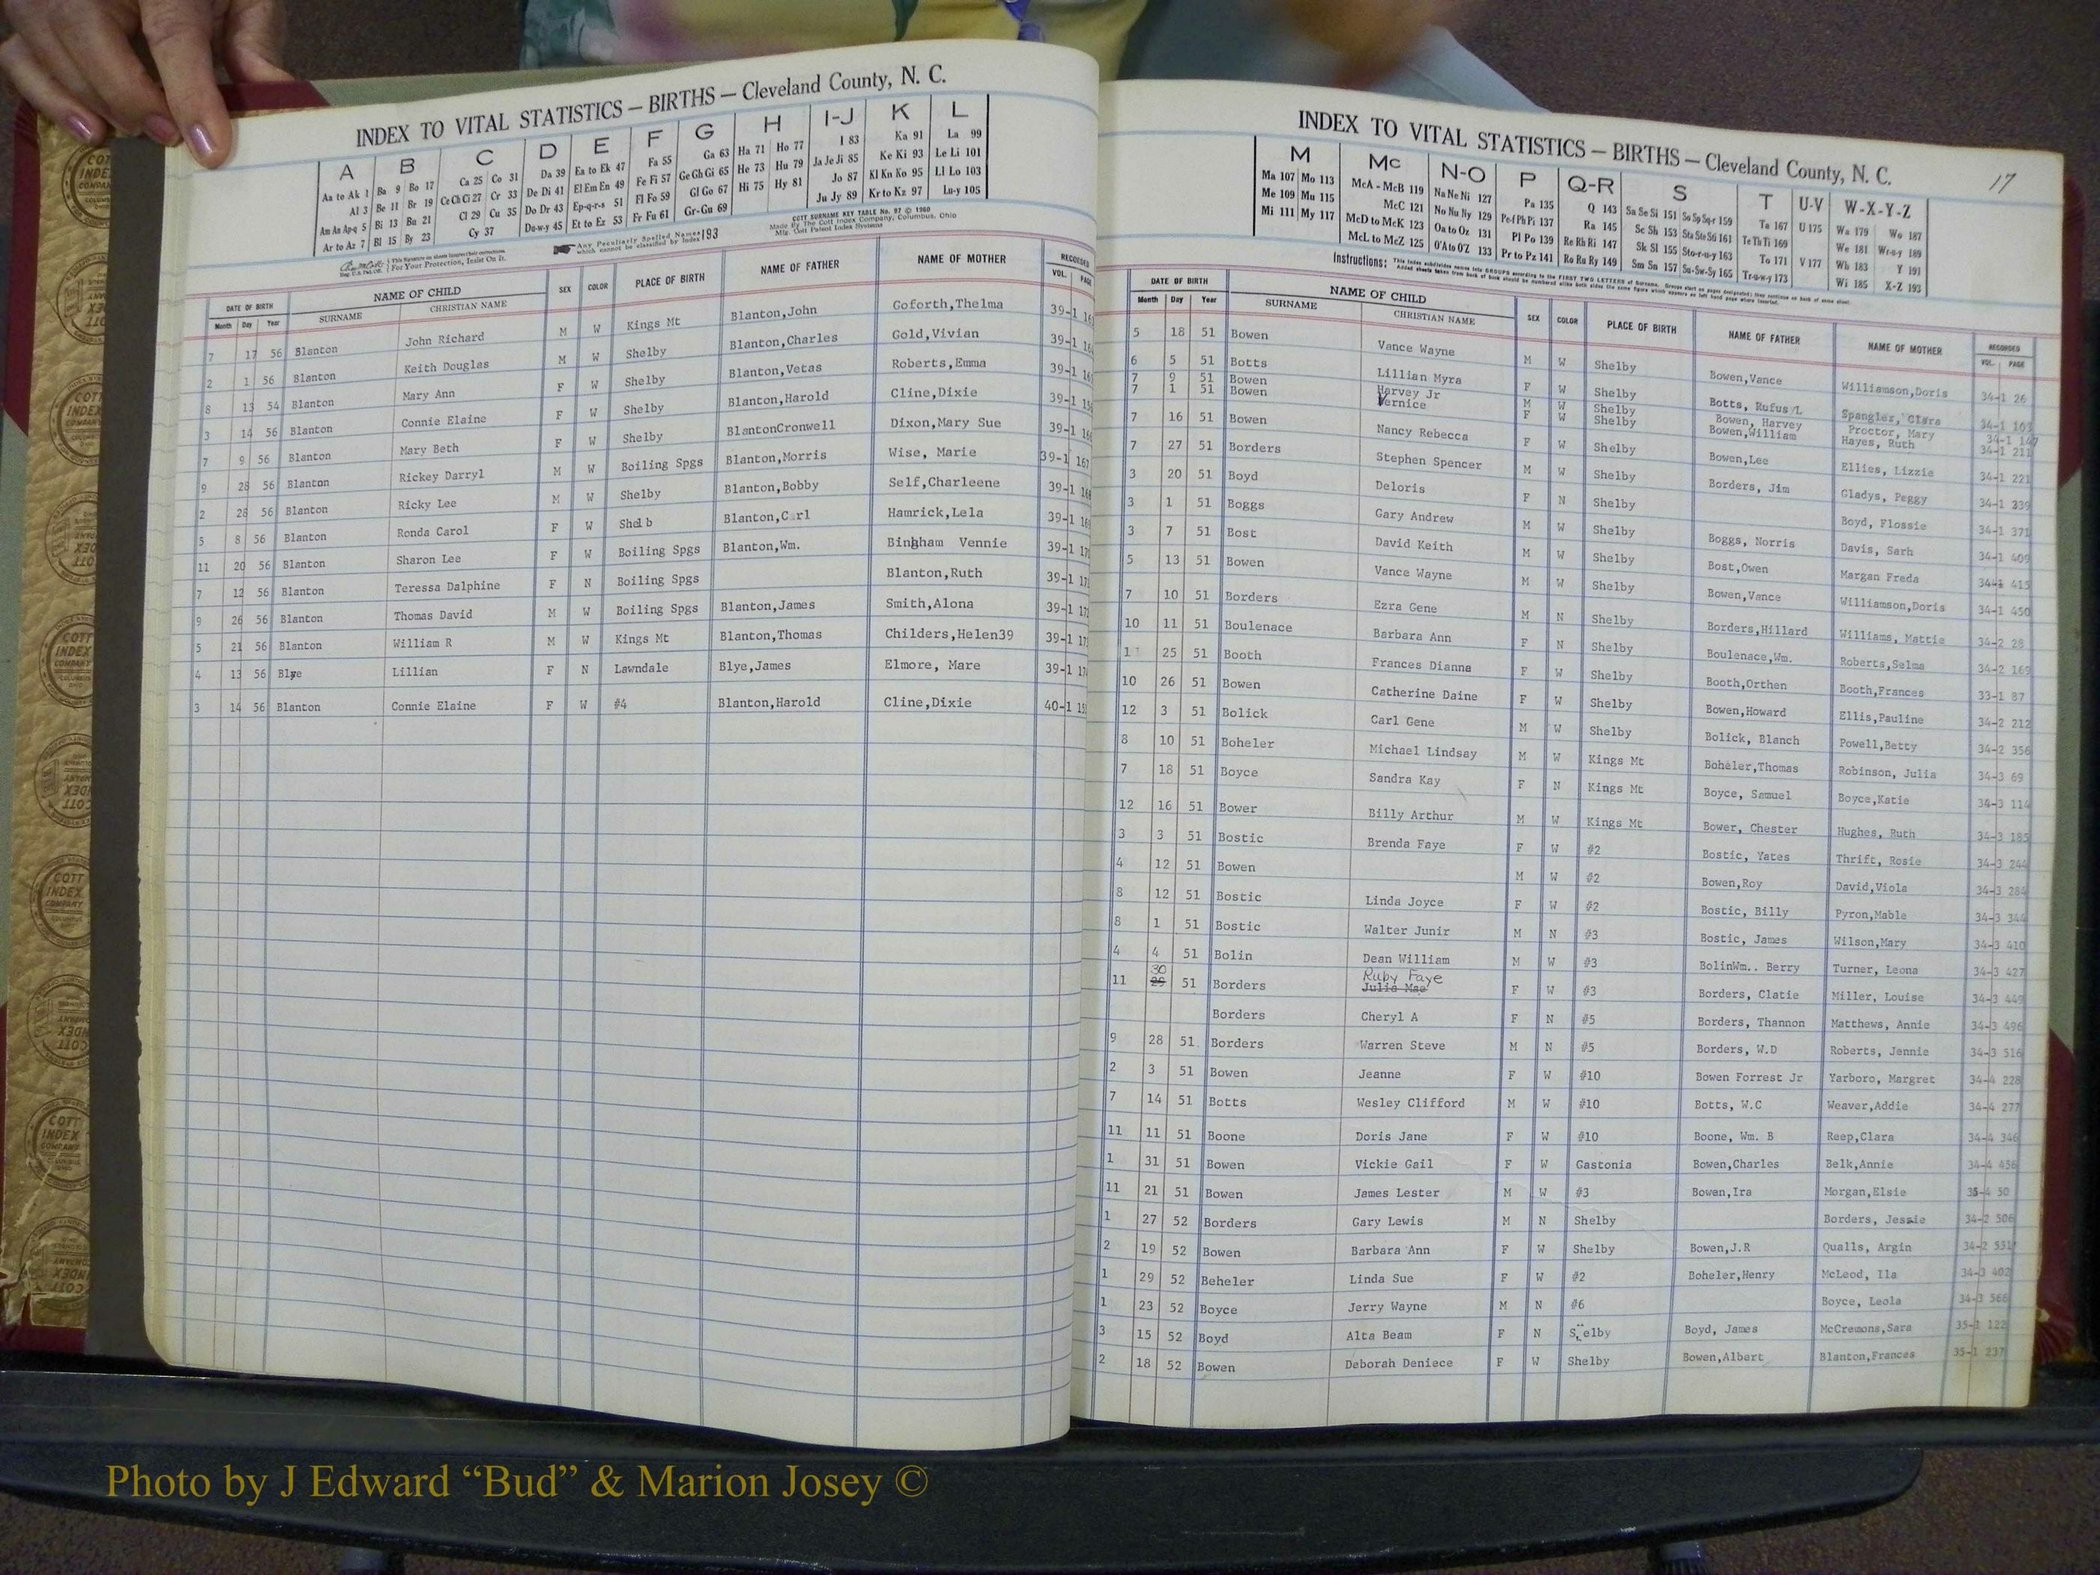 INDEX TO VITAL STATISTICS — BIRTHS — Cleveland County, N. C.
A B C D E F G H I-J K L
Aa to Ak 1 Ba 9 Bo 17 Ca 25 Co 31 Da 39 Ea to Ek 47 Fa 55 Ga 63 Ha 71 Ho 77 I 83 Ka 91 La 99
Al 3 Be 11 Br 19 Ce Ch Ci 27 Cr 33 De Di 41 El Em En 49 Fe Fi 57 Ge Gh Gi 65 He 73 Hu 79 Ja Je Ji 85 Ke Ki 93 Le Li 101
Am An Ap-q 5 Bi 13 Bu 21 Cl 29 Cu 35 Do Dr 43 Ep-q-r-s 51 Fl Fo 59 Gl Go 67 Hi 75 Hy 81 Jo 87 Kl Kn Ko 95 Ll Lo 103
Ar to Az 7 Bl 15 By 23 Cy 37 Du-w-y 45 Et to Ez 53 Fr Fu 61 Gr-Gu 69 Ju Jy 89 Kr to Kz 97 Lu-y 105
For Your Protection, Insist On It.
Any Peculiarly Spelled Names which cannot be classified by Index 193
COTT SURNAME KEY TABLE No. 97 © 1960
Made by The Cott Index Company, Columbus, Ohio
DATE OF BIRTH NAME OF CHILD SEX COLOR PLACE OF BIRTH NAME OF FATHER NAME OF MOTHER RECORDED
Month Day Year SURNAME CHRISTIAN NAME VOL. PAGE
7 17 56 Blanton John Richard M W Kings Mt Blanton,John Goforth,Thelma 39-1
2 1 56 Blanton Keith Douglas M W Shelby Blanton,Charles Gold,Vivian 39-1
8 13 54 Blanton Mary Ann F W Shelby Blanton,Vetas Roberts,Emma 39-1
3 14 56 Blanton Connie Elaine F W Shelby Blanton,Harold Cline,Dixie 39-1
7 9 56 Blanton Mary Beth F W Shelby BlantonCronwell Dixon,Mary Sue 39-1
9 28 56 Blanton Rickey Darryl M W Boiling Spgs Blanton,Morris Wise, Marie 39-1 167
2 28 56 Blanton Ricky Lee M W Shelby Blanton,Bobby Self,Charleene 39-1
5 8 56 Blanton Ronda Carol F W Shel b Blanton,C rl Hamrick,Lela 39-1
11 20 56 Blanton Sharon Lee F W Boiling Spgs Blanton,Wm. Bingham Vennie 39-1
7 12 56 Blanton Teressa Dalphine F N Boiling Spgs Blanton,Ruth 39-1
9 26 56 Blanton Thomas David M W Boiling Spgs Blanton,James Smith,Alona 39-1
5 21 56 Blanton William R M W Kings Mt Blanton,Thomas Childers,Helen39 39-1
4 13 56 Blye Lillian F N Lawndale Blye,James Elmore, Mare 39-1
3 14 56 Blanton Connie Elaine F W #4 Blanton,Harold Cline,Dixie 40-1
INDEX TO VITAL STATISTICS — BIRTHS — Cleveland County, N. C.
17
M Mc N-O P Q-R S T U-V W-X-Y-Z
Ma 107 Mo 113 McA - McB 119 Na Ne Ni 127 Pa 135 Q 143 Sa Se Si 151 So Sp Sq-r 159 Ta 167 U 175 Wa 179 Wo 187
Me 109 Mu 115 McC 121 No Nu Ny 129 Pe-f Ph Pi 137 Ra 145 Sc Sh 153 Sta Ste Sti 161 Te Th Ti 169 We 181 Wr-u-y 189
Mi 111 My 117 McD to McK 123 Oa to Oz 131 Pl Po 139 Re Rh Ri 147 Sk Sl 155 Sto-r-u-y 163 To 171 V 177 Wh 183 Y 191
McL to McZ 125 O'A to O'Z 133 Pr to Pz 141 Ro Ru Ry 149 Sm Sn 157 Su-Sw-Sy 165 Tr-u-w-y 173 Wi 185 X-Z 193
Instructions:
DATE OF BIRTH NAME OF CHILD SEX COLOR PLACE OF BIRTH NAME OF FATHER NAME OF MOTHER RECORDED
Month Day Year SURNAME CHRISTIAN NAME VOL. PAGE
5 18 51 Bowen Vance Wayne M W Shelby Bowen,Vance Williamson,Doris 34-1 26
6 5 51 Botts Lillian Myra F W Shelby Botts, Rufus L Spangler, Clara 34-1 103
7 9 51 Bowen Harvey Jr M W Shelby Bowen, Harvey Proctor, Mary 34-1 147
7 1 51 Bowen Vernice F W Shelby Bowen,William Hayes, Ruth 34-1 211
7 16 51 Bowen Nancy Rebecca F W Shelby Bowen,Lee Ellies, Lizzie 34-1 221
7 27 51 Borders Stephen Spencer M W Shelby Borders, Jim Gladys, Peggy 34-1 239
3 20 51 Boyd Deloris F N Shelby Boyd, Flossie 34-1 371
3 1 51 Boggs Gary Andrew M W Shelby Boggs, Norris Davis, Sarh 34-1 409
3 7 51 Bost David Keith M W Shelby Bost,Owen Margan Freda 34-1 415
5 13 51 Bowen Vance Wayne M W Shelby Bowen,Vance Williamson,Doris 34-1 450
7 10 51 Borders Ezra Gene M N Shelby Borders,Hillard Williams, Mattie 34-2 28
10 11 51 Boulenace Barbara Ann F N Shelby Boulenace,Wm. Roberts,Selma 34-2 169
1 25 51 Booth Frances Dianna F W Shelby Booth,Orthen Booth,Frances 33-1 87
10 26 51 Bowen Catherine Daine F W Shelby Bowen,Howard Ellis,Pauline 34-2 212
12 3 51 Bolick Carl Gene M W Shelby Bolick, Blanch Powell,Betty 34-2 356
8 10 51 Boheler Michael Lindsay M W Kings Mt Boheler,Thomas Robinson, Julia 34-3 69
7 18 51 Boyce Sandra Kay F N Kings Mt Boyce, Samuel Boyce,Katie 34-3 114
12 16 51 Bower Billy Arthur M W Kings Mt Bower, Chester Hughes, Ruth 34-3 185
3 3 51 Bostic Brenda Faye F W #2 Bostic, Yates Thrift, Rosie 34-3 244
4 12 51 Bowen M W #2 Bowen,Roy David,Viola 34-3 284
8 12 51 Bostic Linda Joyce F W #2 Bostic, Billy Pyron,Mable 34-3 344
8 1 51 Bostic Walter Junir M N #3 Bostic, James Wilson,Mary 34-3 410
4 4 51 Bolin Dean William M W #3 BolinWm.. Berry Turner, Leona 34-3 427
11 30 51 Borders Ruby Faye Julia Mae F W #3 Borders, Clatie Miller, Louise 34-3 449
Borders Cheryl A F N #5 Borders, Thannon Matthews, Annie 34-3 496
9 28 51 Borders Warren Steve M N #5 Borders, W.D Roberts, Jennie 34-3 516
2 3 51 Bowen Jeanne F W #10 Bowen Forrest Jr Yarboro, Margret 34-4 228
7 14 51 Botts Wesley Clifford M W #10 Botts, W.C Weaver,Addie 34-4 277
11 11 51 Boone Doris Jane F W #10 Boone, Wm. B Reep,Clara 34-4 346
1 31 51 Bowen Vickie Gail F W Gastonia Bowen,Charles Belk,Annie 34-4 456
11 21 51 Bowen James Lester M W #3 Bowen,Ira Morgan,Elsie 35-4 50
1 27 52 Borders Gary Lewis M N Shelby Borders, Jessie 34-2 506
2 19 52 Bowen Barbara Ann F W Shelby Bowen,J.R Qualls, Argin 34-2 551
1 29 52 Beheler Linda Sue F W #2 Boheler,Henry McLeod, Ila 34-3 402
1 23 52 Boyce Jerry Wayne M N #6 Boyce, Leola 34-3 566
3 15 52 Boyd Alta Beam F N Shelby Boyd, James McCremons,Sara 35-1 122
2 18 52 Bowen Deborah Deniece F W Shelby Bowen,Albert Blanton,Frances 35-1 237
Photo by J Edward “Bud” & Marion Josey ©